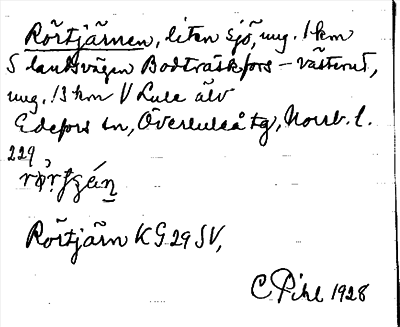 Rörtjärnen, liten sjö, ung. 1 km
S landsvägen Bodträskfors – västerut,
ung. 13 km V Lule älv
Edefors sn, Överluleå tg, Norrb. l.
229
Rörtjärn KG 29 SV,
C Pihl 1928